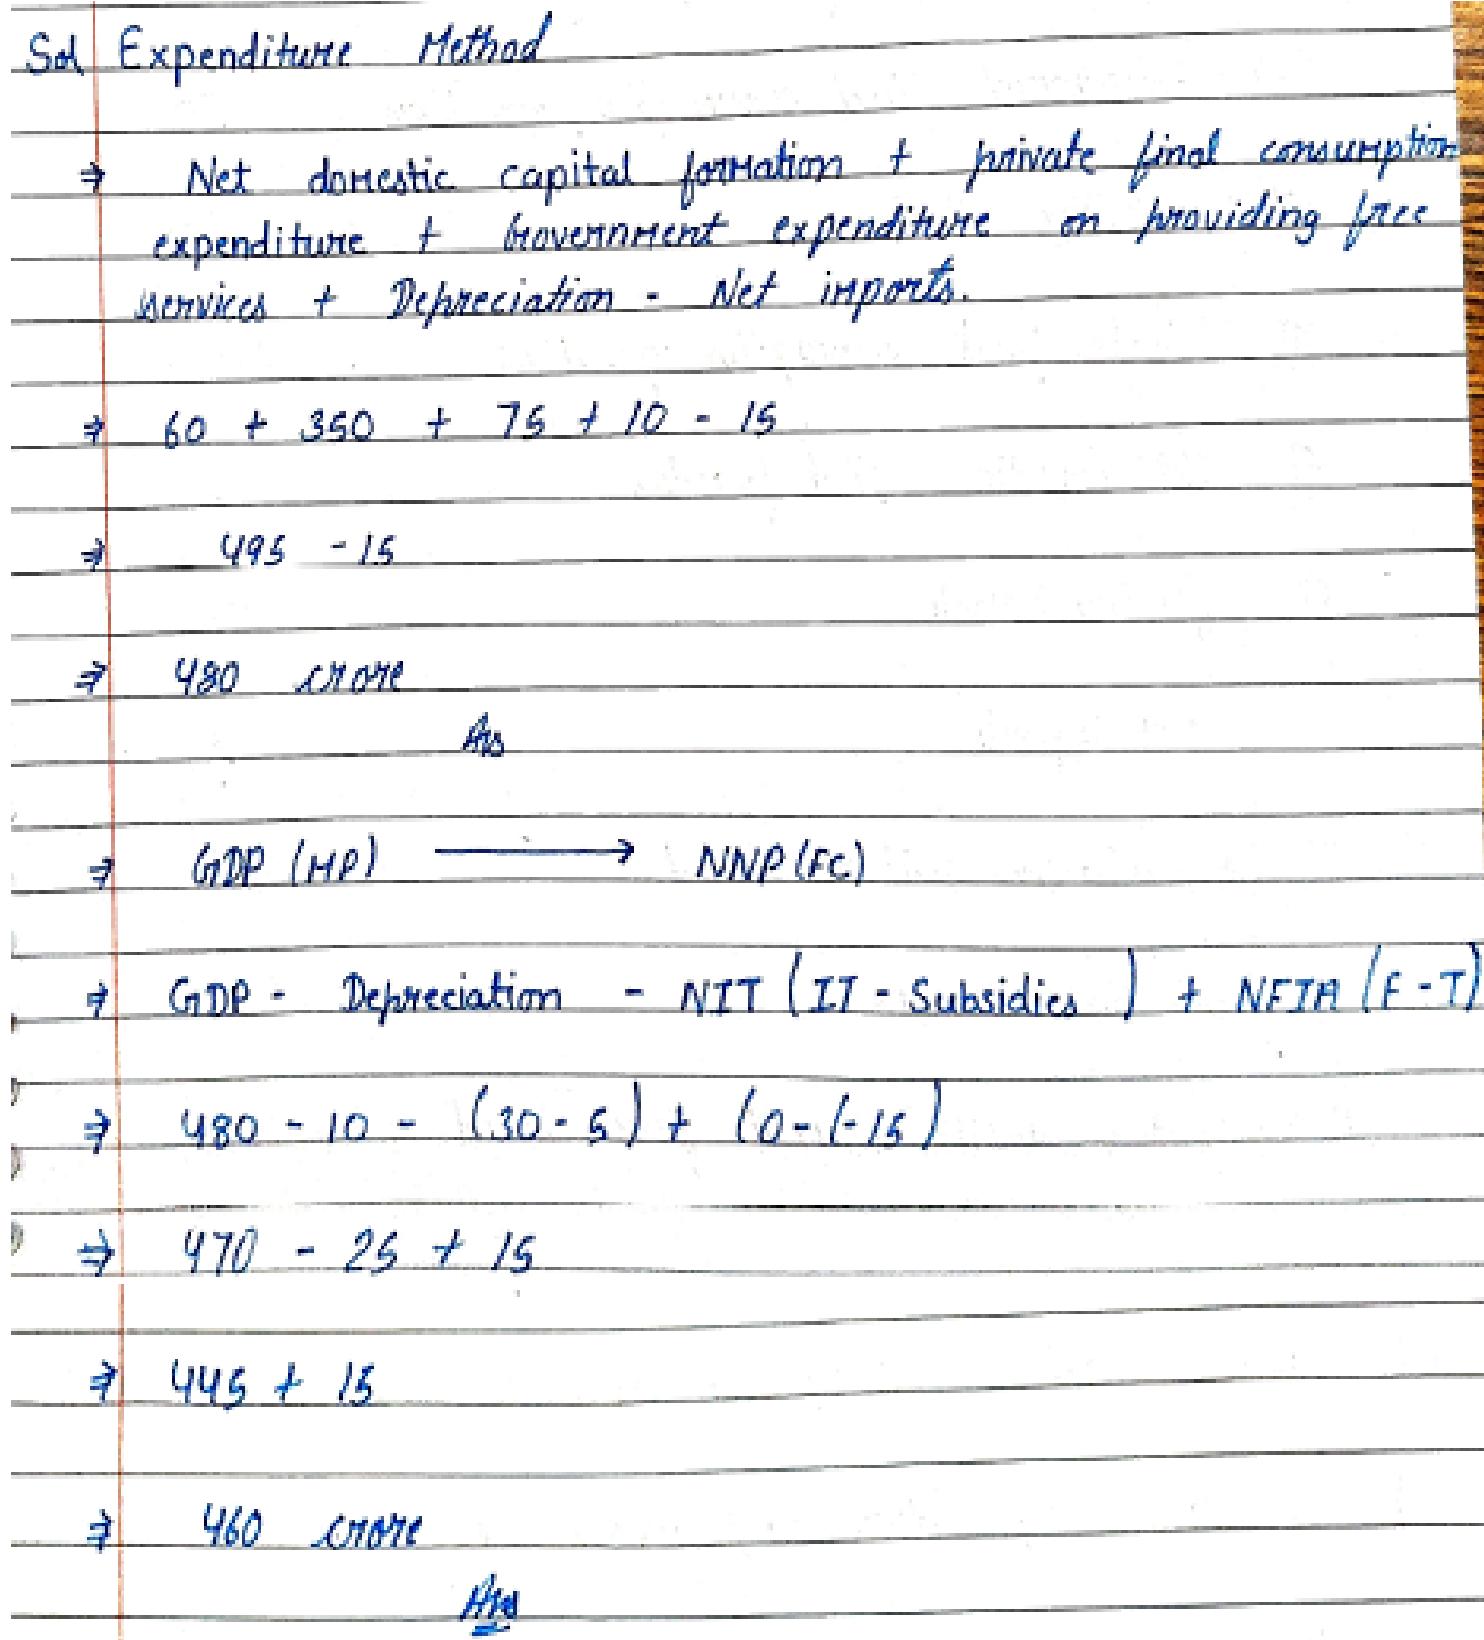 Sol Expenditure Method
⇒ Net domestic capital formation + private final consumption
expenditure + Government expenditure on providing free
services + Depreciation - Net imports.
⇒ 60 + 350 + 75 + 10 - 15
⇒ 495 - 15
⇒ 480 crore
Ans
⇒ GDP (MP) ⟶ NNP (FC)
⇒ GDP - Depreciation - NIT (IT - Subsidies) + NFIA (F - T)
⇒ 480 - 10 - (30 - 5) + (0 - (-15)
⇒ 470 - 25 + 15
⇒ 445 + 15
⇒ 460 crore
Ans